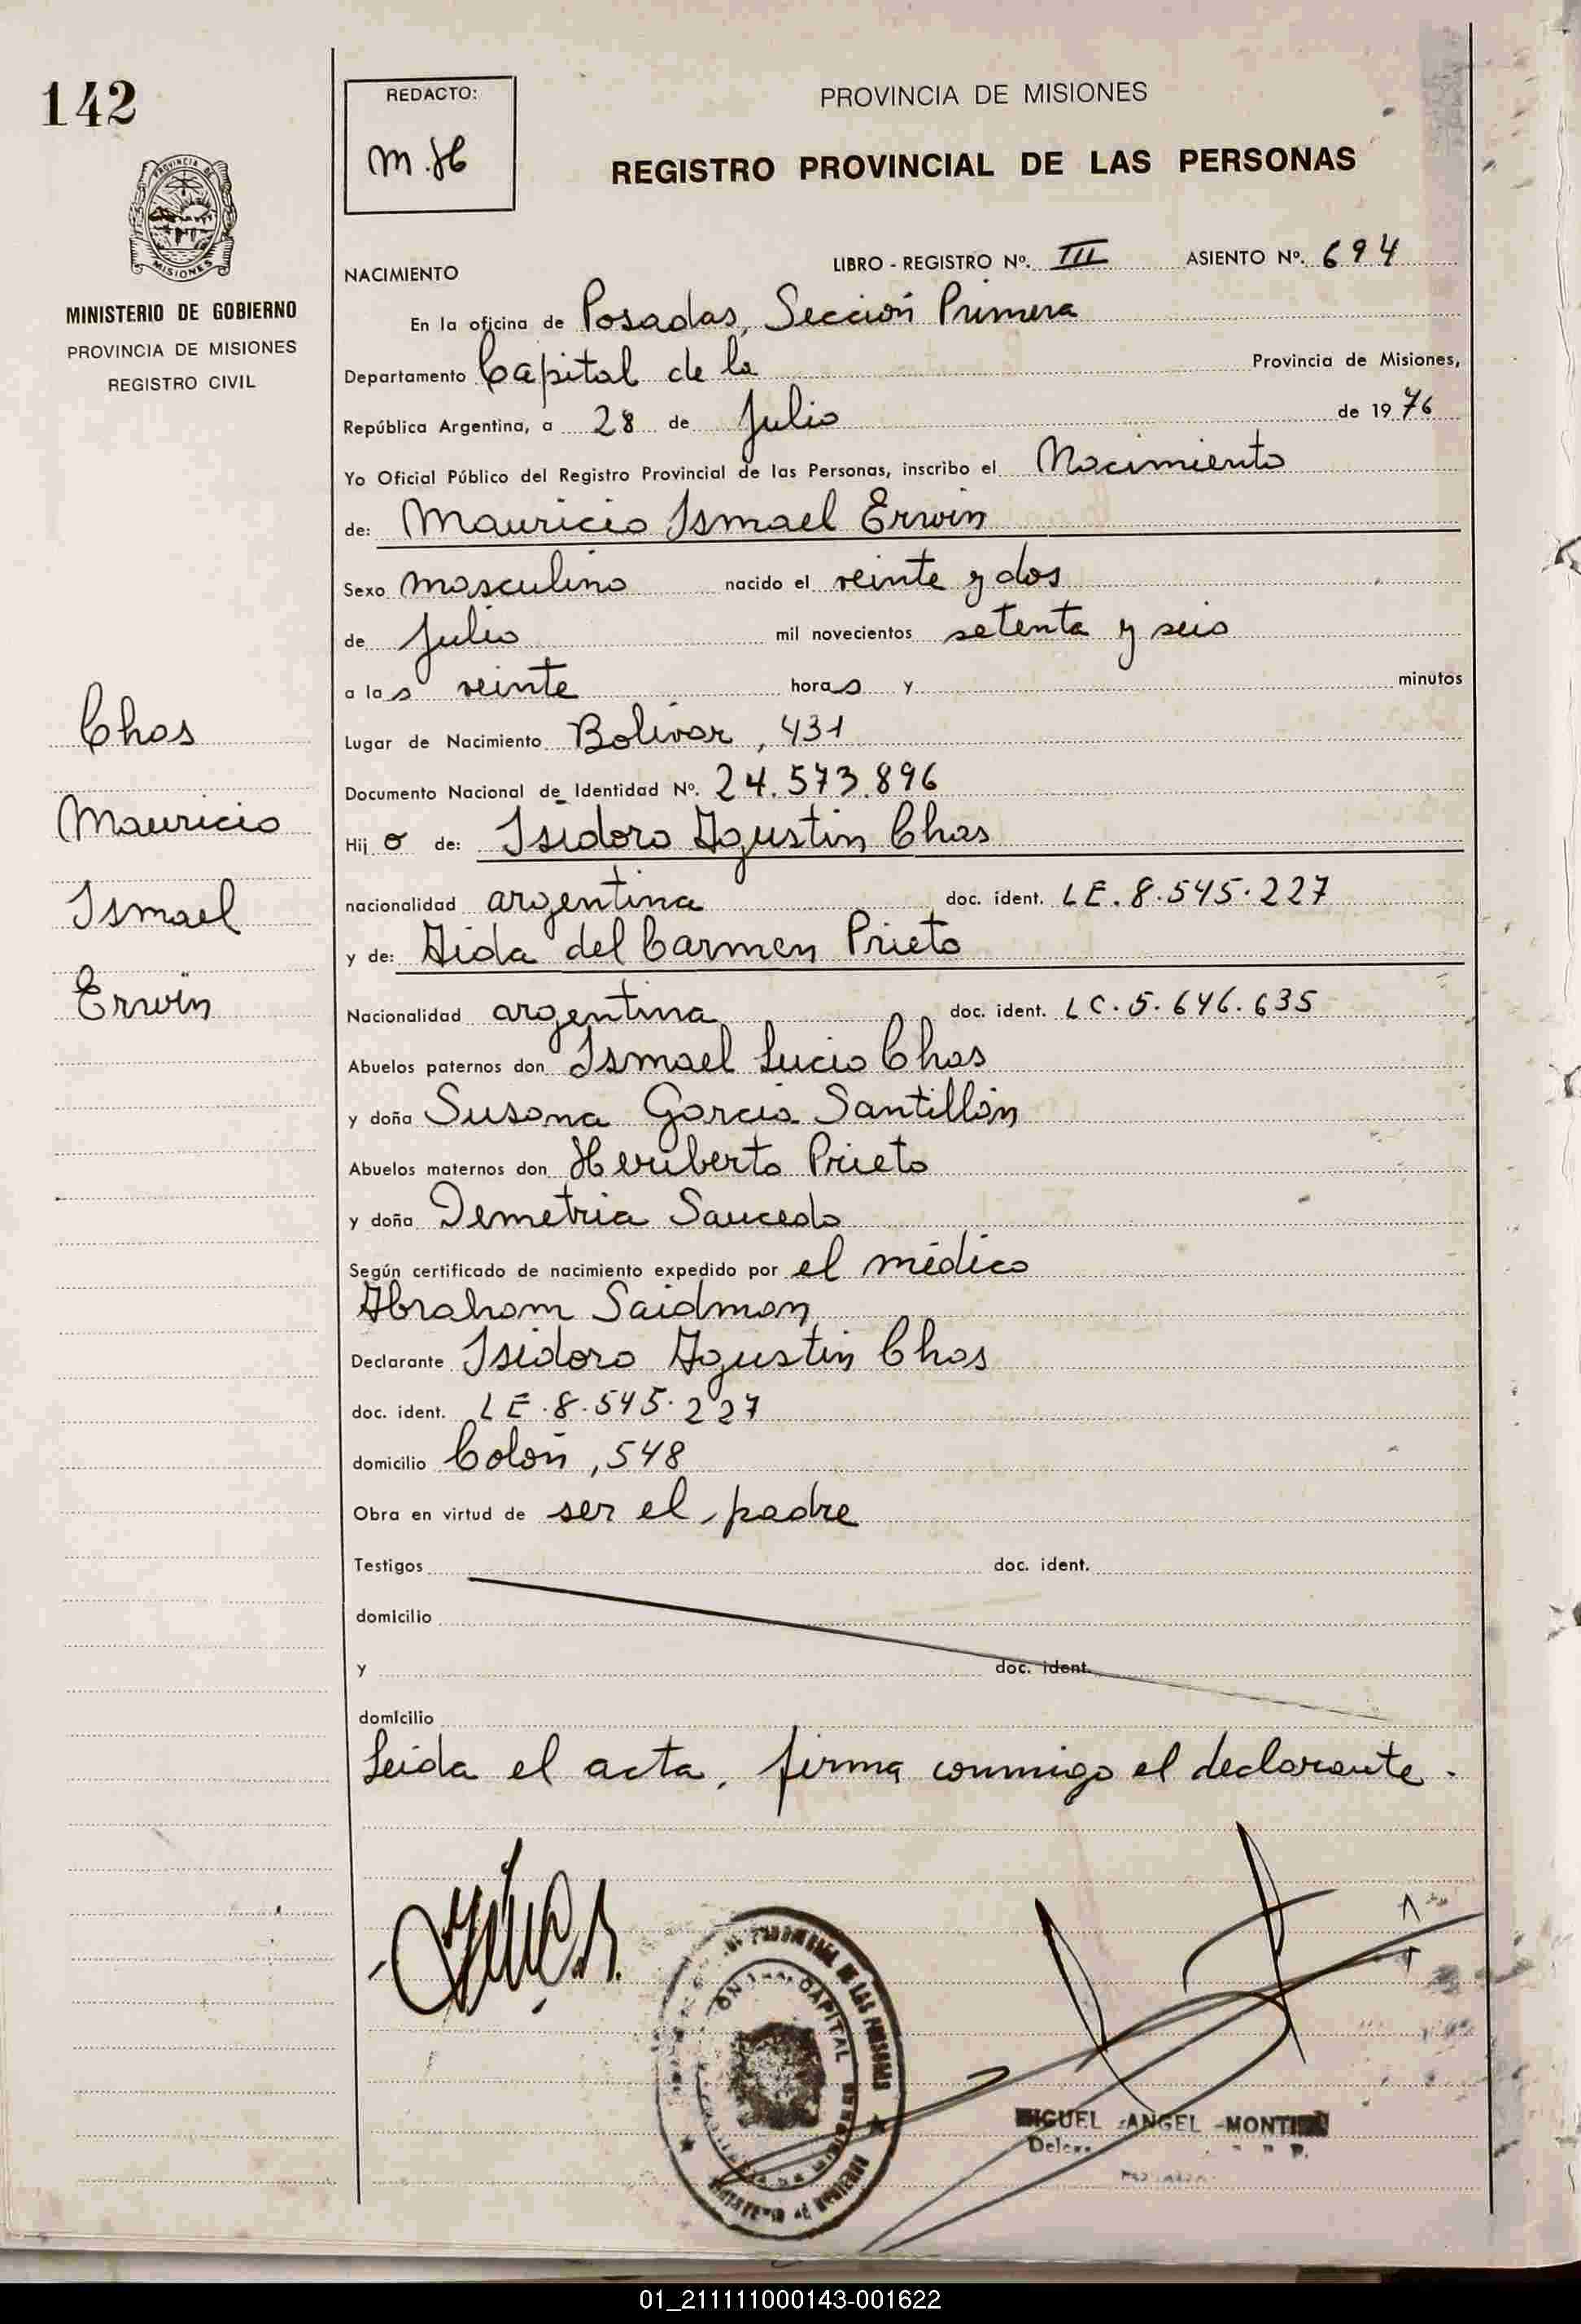 142
MINISTERIO DE GOBIERNO
PROVINCIA DE MISIONES
REGISTRO CIVIL
Chas
Mauricio
Ismael
Erwin
REDACTO:
M.H
PROVINCIA DE MISIONES
REGISTRO PROVINCIAL DE LAS PERSONAS
NACIMIENTO LIBRO - REGISTRO Nº. III ASIENTO Nº. 694
En la oficina de Posadas, Sección Primera
Departamento Capital de la Provincia de Misiones,
República Argentina, a 28 de Julio de 1976
Yo Oficial Público del Registro Provincial de las Personas, inscribo el Nacimiento
de: Mauricio Ismael Erwin
Sexo masculino nacido el veinte y dos
de Julio mil novecientos setenta y seis
a las veinte horas y minutos
Lugar de Nacimiento Bolívar, 431
Documento Nacional de Identidad Nº. 24.573.896
Hijo de: Isidoro Agustín Chas
nacionalidad argentina doc. ident. LE. 8.545.227
y de: Aida del Carmen Prieto
Nacionalidad argentina doc. ident. LC. 5.646.635
Abuelos paternos don Ismael Lucio Chas
y doña Susana García Santillán
Abuelos maternos don Heriberto Prieto
y doña Demetria Saucedo
Según certificado de nacimiento expedido por el médico
Abraham Saidman
Declarante Isidoro Agustín Chas
doc. ident. LE. 8.545.227
domicilio Colón, 548
Obra en virtud de ser el padre
Testigos doc. ident.
domicilio
y doc. ident.
domicilio
Leida el acta, firma conmigo el declarante.
CAPITAL
DE LAS PERSONAS
MIGUEL ANGEL
01_211111000143-001622